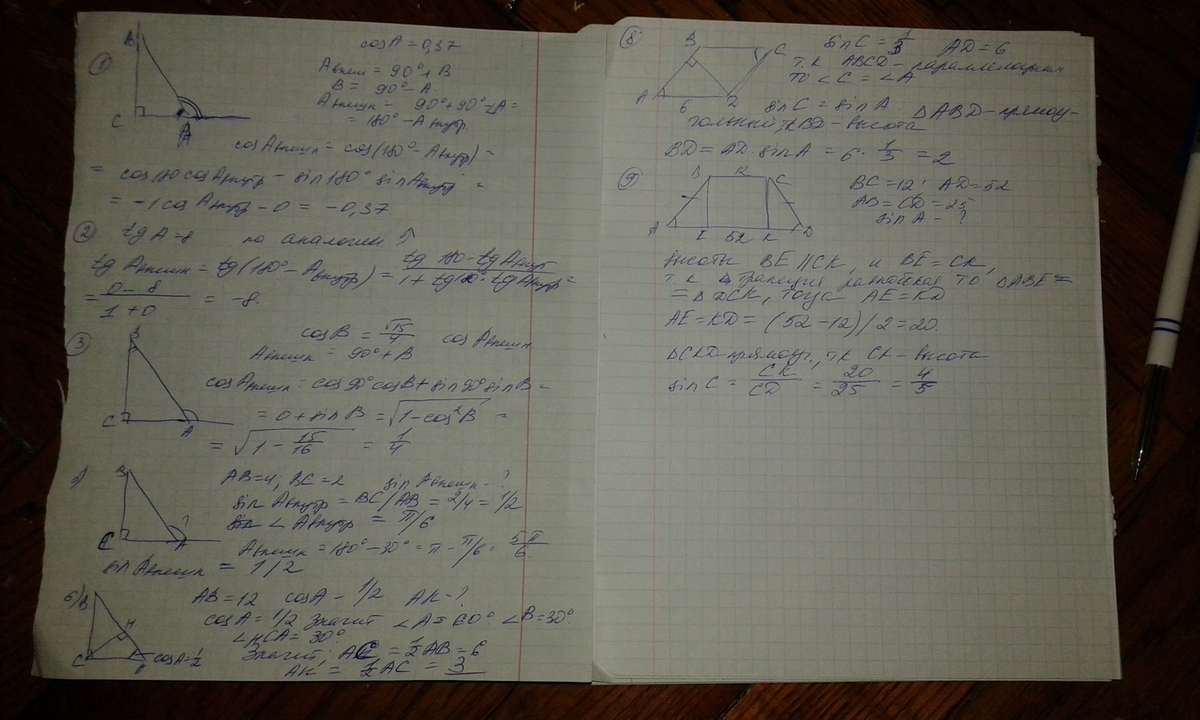 1
B
C
A
cosA = 0,37
Aвнеш = 90° + B
B = 90° - A
Aвнешн = 90° + 90° - A =
= 180° - Aвнутр
cosAвнешн = cos(180° - Aвнутр) =
= cos180 cosAвнутр - sin180° sinAвнутр =
= -1 cosAвнутр - 0 = -0,37
2 tgA=8 по аналогии
tgAвнешн = tg(180° - Aвнутр) = tg 180 - tgAвнут / 1 + tg180° · tgAвнутр =
= 0-8 / 1+0 = -8.
3
B
C
A
cosB = √15/4 cosAвнешн
Aвнешн = 90° + B
cosAвнешн = cos90° cosB + sin90° sinB =
= 0 + sinB = √1-cos²B =
= √1 - 15/16 = 1/4
B
C
A
?
AB=4, BC=2 sinAвнешн - ?
sinAвнутр = BC/AB = 2/4 = 1/2
∠Aвнутр = π/6
Aвнешн = 180° - 30° = π - π/6 = 5π/6
sinAвнешн = 1/2
6)
B
H
C
A
cosA=1/2
AB=12 cosA = 1/2 AK - ?
cosA = 1/2 Значит ∠A = 60° ∠B = 30°
∠KCA = 30°
Значит: AC = 1/2 AB = 6
AK = 1/2 AC = 3
8
B
C
A
6
D
sinC = 1/3 AD=6
т.к ABCD - параллелограм
то ∠C = ∠A
sinC = sinA ΔABD - прямоу-
гольный, тк BD - высота
BD = AD · sinA = 6 · 1/3 = 2
9
B
12
C
A
E
52
K
D
BC=12, AD=52
AB = CD = 25
sinA - ?
высоты BE || CK, и BE = CK
т к трапеция равнобокая то, ΔABE =
= ΔDCK, тогда AE = KD
AE = KD = (52 - 12)/2 = 20.
ΔCKD - прямоуг., тк CK - высота
sinC = CK/CD = 20/25 = 4/5